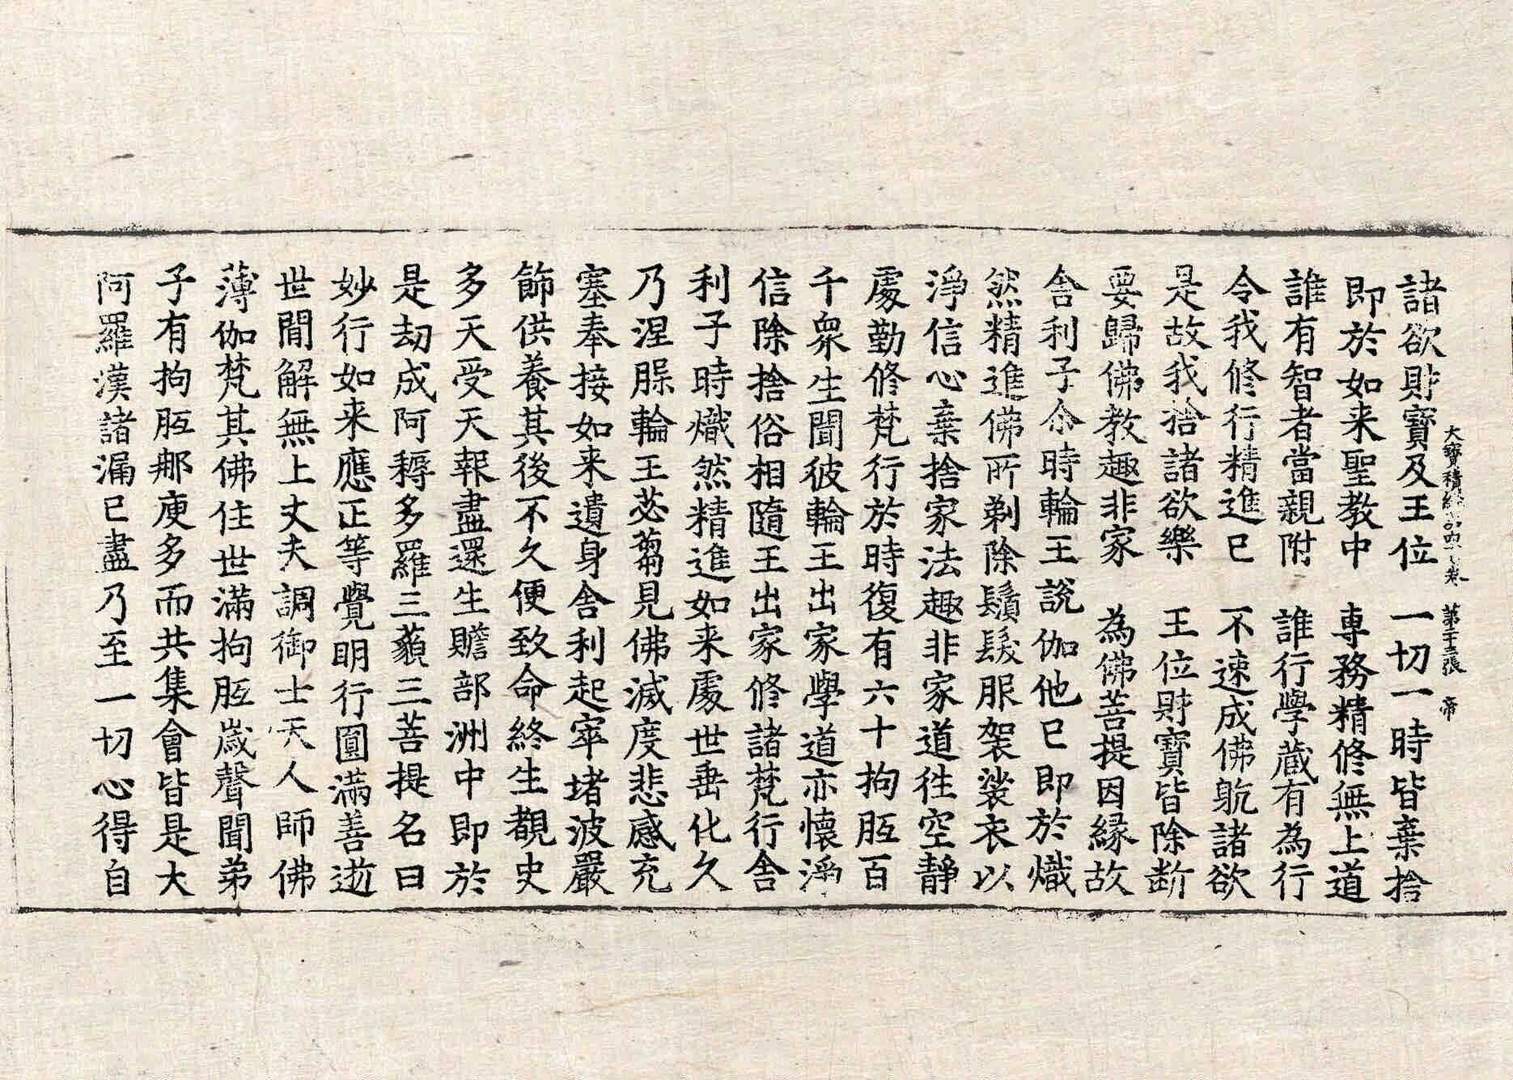 諸欲財寶及王位　一切一時皆棄捨
大寶積經　卷　第　張　帝
即於如来聖教中　専務精修無上道
誰有智者當親附　誰行學蔵有為行
令我修行精進已　不速成佛躭諸欲
是故我捨諸欲樂　王位財寶皆除断
要歸佛教趣非家　為佛菩提因縁故
舎利子尒時輪王說伽他已即於熾
然精進佛所剃除鬚髮服袈裟衣以
淨信心棄捨家法趣非家道徃空靜
處勤修梵行於時復有六十拘胝百
千衆生聞彼輪王出家學道亦懷淨
信除捨俗相隨王出家修諸梵行舎
利子時熾然精進如来處世垂化久
乃涅槃輪王苾蒭見佛滅度悲感充
塞奉接如来遺身舎利起窣堵波嚴
飾供養其後不久便致命終生覩史
多天受天報盡還生贍部洲中即於
是劫成阿耨多羅三藐三菩提名曰
妙行如来應正等覺明行圓滿善逝
世間解無上丈夫調御士天人師佛
薄伽梵其佛住世滿拘胝歳聲聞弟
子有拘胝那庾多而共集會皆是大
阿羅漢諸漏已盡乃至一切心得自